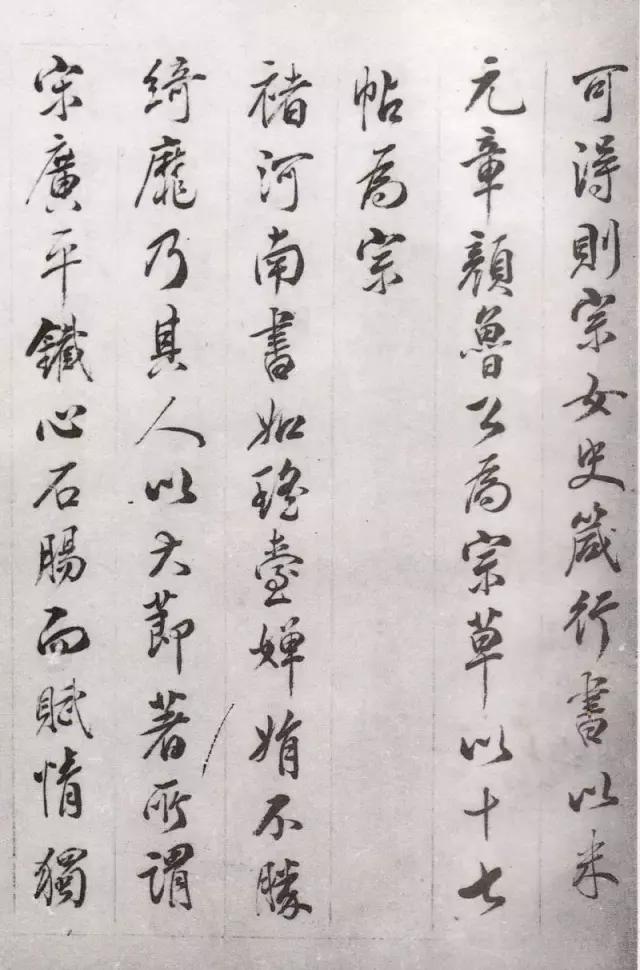 可得則宗女史箴行書以米
元章顏魯公為宗草以十七
帖為宗
褚河南書如瑤臺嬋娟不勝
綺靡乃其人以大節著所謂
宋廣平鐵心石腸而賦情獨